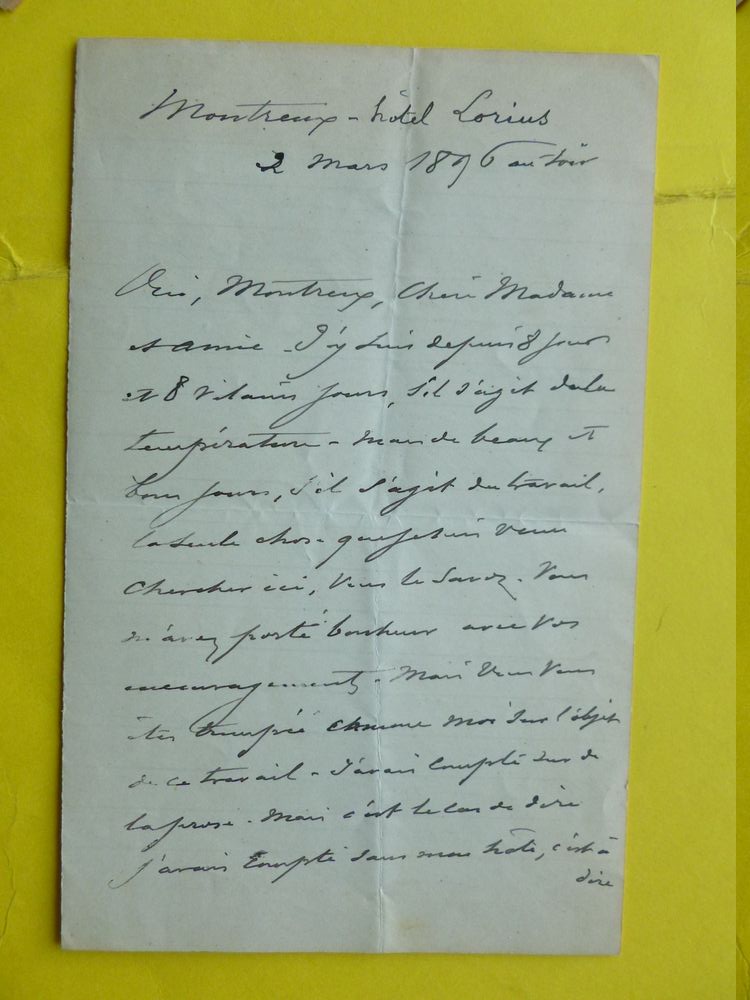 Montreux - hôtel Lorius
2 Mars 1896 au soir
Oui, Montreux, Chère Madame
et amie - J'y suis depuis 8 jours
et 8 vilains jours, s'il s'agit de la
température - mais de beaux et
bons jours, s'il s'agit du travail,
la seule chose que je suis venu
chercher ici, vous le savez. Vous
m'avez porté bonheur avec vos
encouragements - Mais vous vous
êtes trompée comme moi sur l'objet
de ce travail - J'avais compté sur de
la prose - mais c'est le cas de dire
j'avais compté sans mon hôte, c'est à
dire